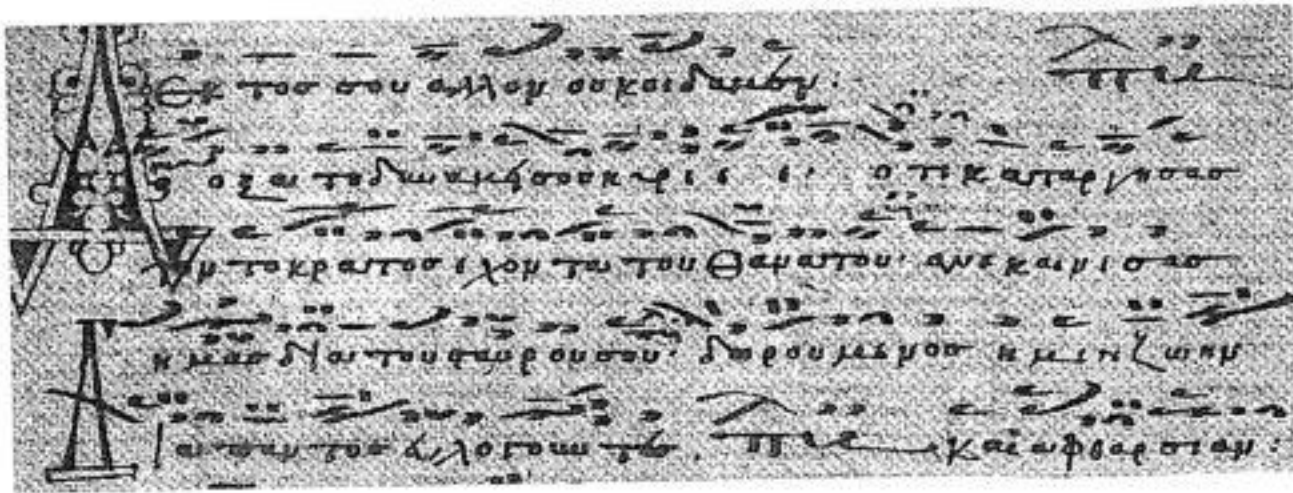 Εκτος σου αλλον ουκ οιδαμεν:
Δοξα τη δυναμει σου κυριε ε· οτι καταργησας
τον το κρατος εχοντα του θανατου· ανεκαινισας
ημας δια του σταυρου σου· δωρουμενος ημιν ζωην
και αφθαρσιαν: